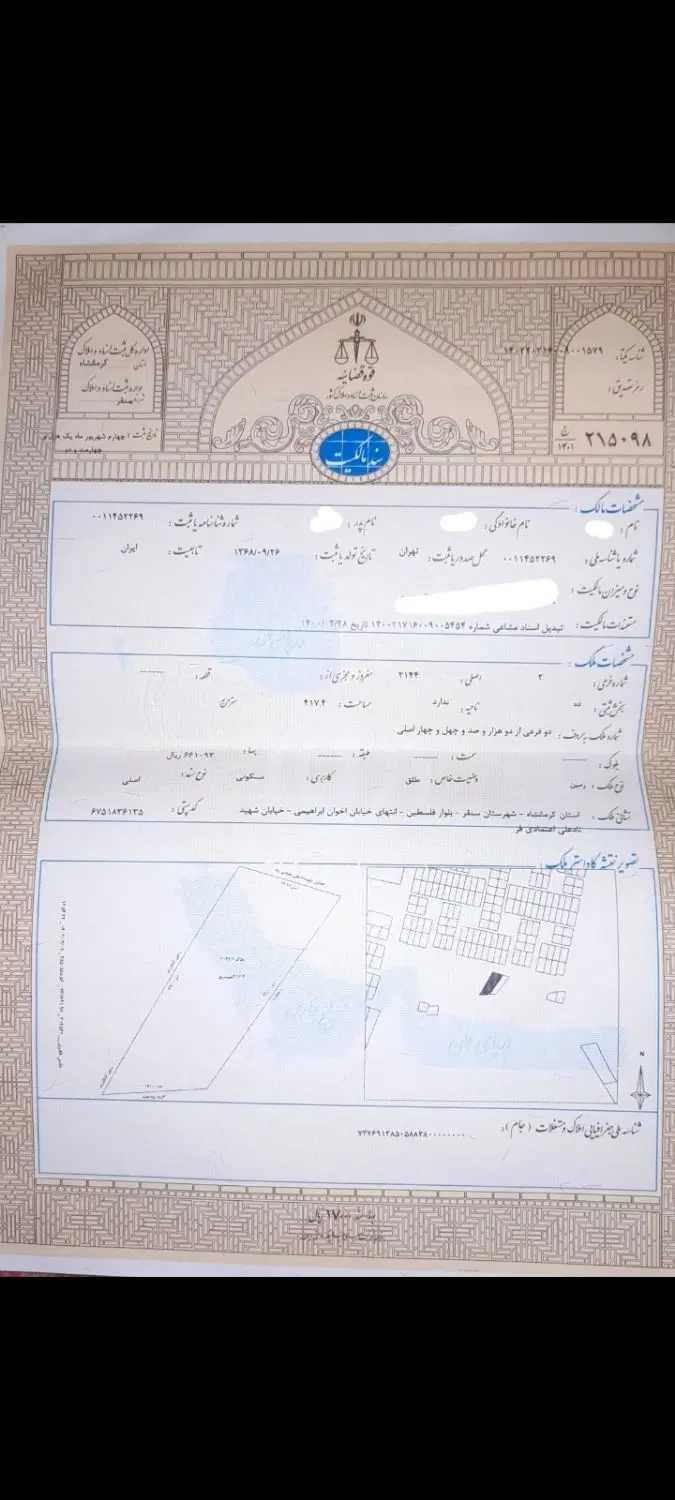 قوه قضائیه
سازمان ثبت اسناد و املاک کشور
اداره کل ثبت اسناد و املاک
استان کرمانشاه
اداره ثبت اسناد و املاک
سنقر
شناسه یکتا:
رمز تصدیق:
سند مالکیت
ج ۱۴۰۱ ۲۱۵۰۹۸
تاریخ ثبت: چهارم شهریور ماه یک هزار و
چهارصد و دو
مشخصات مالک:
نام: نام خانوادگی: نام پدر: شماره شناسنامه یا ثبت: ۰۰۱۱۴۵۲۲۶۹
شماره یا شناسه ملی: ۰۰۱۱۴۵۲۲۶۹ محل صدور یا ثبت: تهران تاریخ تولد یا ثبت: ۱۳۶۸/۰۹/۲۶ تابعیت: ایران
نوع و میزان مالکیت:
مستندات مالکیت: تبدیل اسناد مشاعی شماره ۱۴۰۰۲۱۷۱۶۰۰۹۰۰۵۴۵۴ تاریخ
مشخصات ملک:
شماره فرعی: ۲ اصلی: ۲۱۴۴ مفروز و مجزی از: قطعه:
بخش ثبتی: ناحیه: ندارد مساحت: ۴۱۷.۴ مترمربع
شماره ملک به حروف: دو فرعی از دو هزار و صد و چهل و چهار اصلی
بلوک: سمت: طبقه: بها: ۶۴۱۰۹۳ ریال
نوع ملک: زمین وضعیت خاص: طلق کاربری: مسکونی نوع سند: اصلی
نشانی ملک: استان کرمانشاه - شهرستان سنقر - بلوار فلسطین - انتهای خیابان اخوان ابراهیمی - خیابان شهید کد پستی: ۶۷۵۱۸۳۶۱۳۵
نادعلی اعتمادی فر
تصویر نقشه کاداستر ملک:
N
شناسه ملی جغرافیایی املاک و مستغلات (جام):
۱۷۰۰۰ ریال